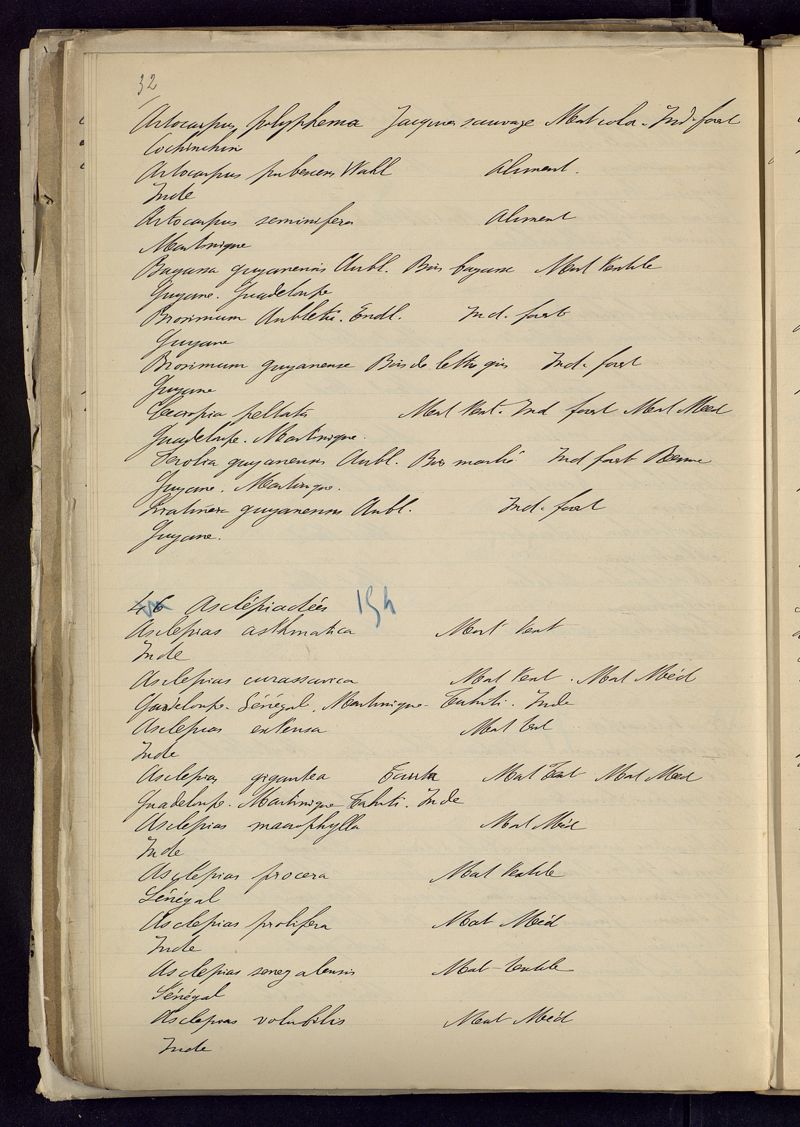 32
Artocarpus polyphema Jacquier sauvage Mat color. Ind. forest
Cochinchin
Artocarpus pubescens Wahl Aliment.
Inde
Artocarpus seminifera Aliment
Martinique
Bagassa guyanensis Aubl. Bois bagasse Mat Textile
Guyane. Guadeloupe
Brosimum Aubletii. Endl. Ind. forest
Guyane
Brosimum guyanense Bois de lettre gris Ind. forest
Guyane
Cecropia peltata Mat Text. Ind forest Mat Med
Guadeloupe. Martinique.
Ferolia guyanensis Aubl. Bois marbré Ind forest
Guyane. Martinique.
guyanensis Aubl. Ind. forest
Guyane.
46 Asclépiadées 154
Asclepias asthmatica Mat Text
Inde
Asclepias curassavica Mat Text. Mat Méd
Guadeloupe. Sénégal. Martinique. Tahiti. Inde
Asclepias extensa Mat Text
Inde
Asclepias gigantea Mat Text Mat Med
Guadeloupe. Martinique Tahiti. Inde
Asclepias macrophylla Mat Méd
Inde
Asclepias procera Mat Textile
Sénégal
Asclepias prolifera Mat Méd
Inde
Asclepias senegalensis Mat-textile
Sénégal
Asclepias volubilis Mat Méd
Inde